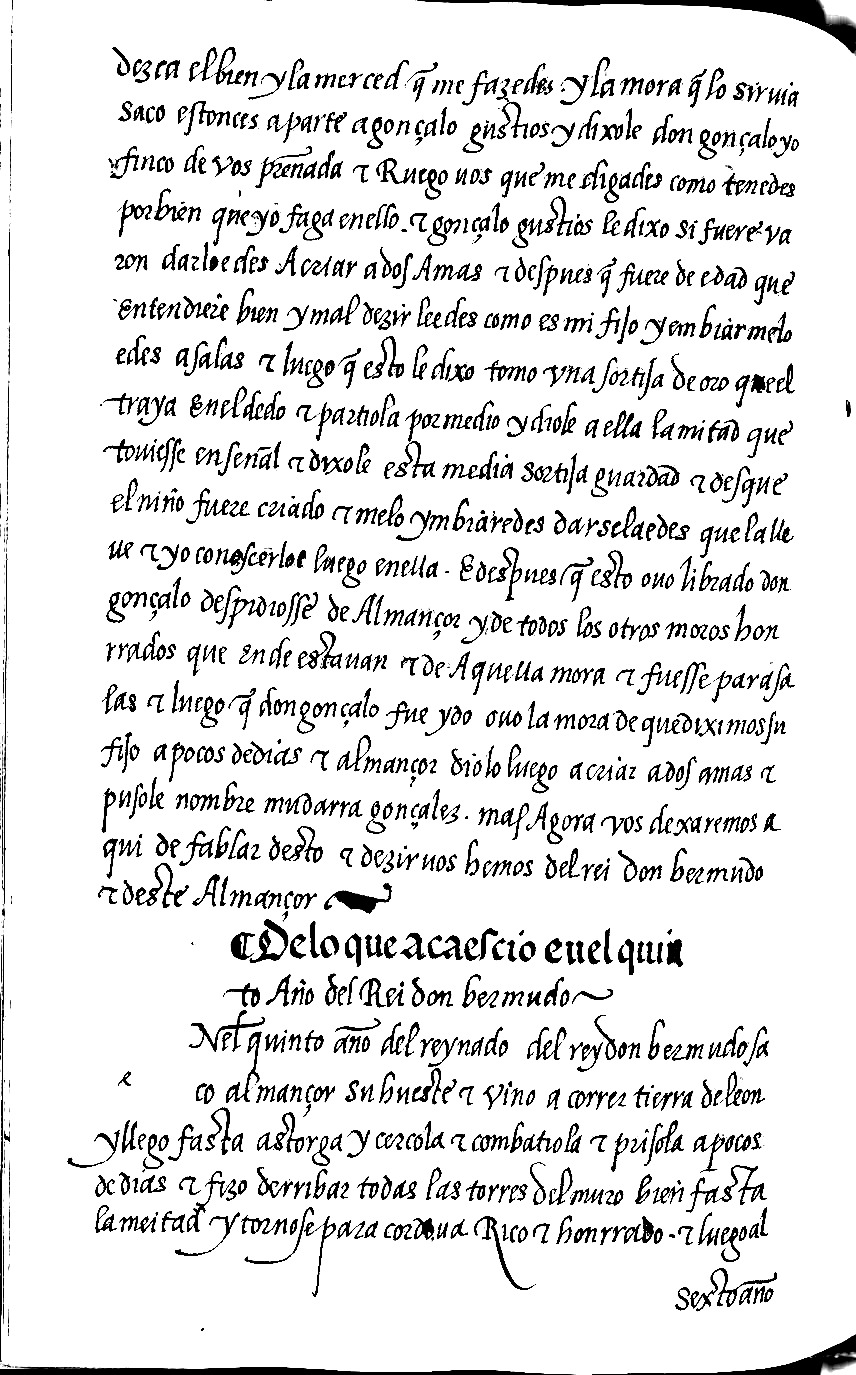 dezca el bien y la merced q̃ me fazedes y la mora q̃ lo siruia
saco estonces aparte a gonçalo gustios y dixole don gonçalo yo
finco de vos preñada τ Ruego uos que me digades como tenedes
por bien que yo faga en ello. τ gonçalo gustios le dixo si fuere va
ron darloedes A criar a dos Amas τ despues q̃ fuere de edad que
Entendiere bien y mal dezir leedes como es mi fijo y embiarmelo
edes a salas τ luego q̃ esto le dixo tomo vna sortija de oro que el
traya En el dedo τ partiola por medio y diole a ella la mitad que
touiesse en señal τ dixole esta media sortija guardad τ desque
el niño fuere criado τ melo ymbiaredes darselaedes que la lle
ue τ yo conoscerloe luego en ella. E despues q̃ esto ouo librado don
gonçalo despidiosse de Almançor y de todos los otros moros hon
rrados que ende estauan τ de Aquella mora τ fuesse para sa
las τ luego q̃ don gonçalo fue ydo ouo la mora de que diximos su
fijo a pocos de dias τ almançor diolo luego a criar a dos amas τ
pusole nombre mudarra gonçalez. mas Agora vos dexaremos a
qui de fablar desto τ dezir uos hemos del rei don bermudo
τ deste Almançor
¶ De lo que acaescio en el quin
to Año del Rei don bermudo
e
Nel quinto año del reynado del rey don bermudo sa
co almançor su hueste τ vino a correr tierra de leon
y llego fasta astorga y cercola τ combatiola τ prisola a pocos
de dias τ fizo derribar todas las torres del muro bien fasta
la meitad y tornose para cordoua Rico τ honrrado. τ luego al
sexto año